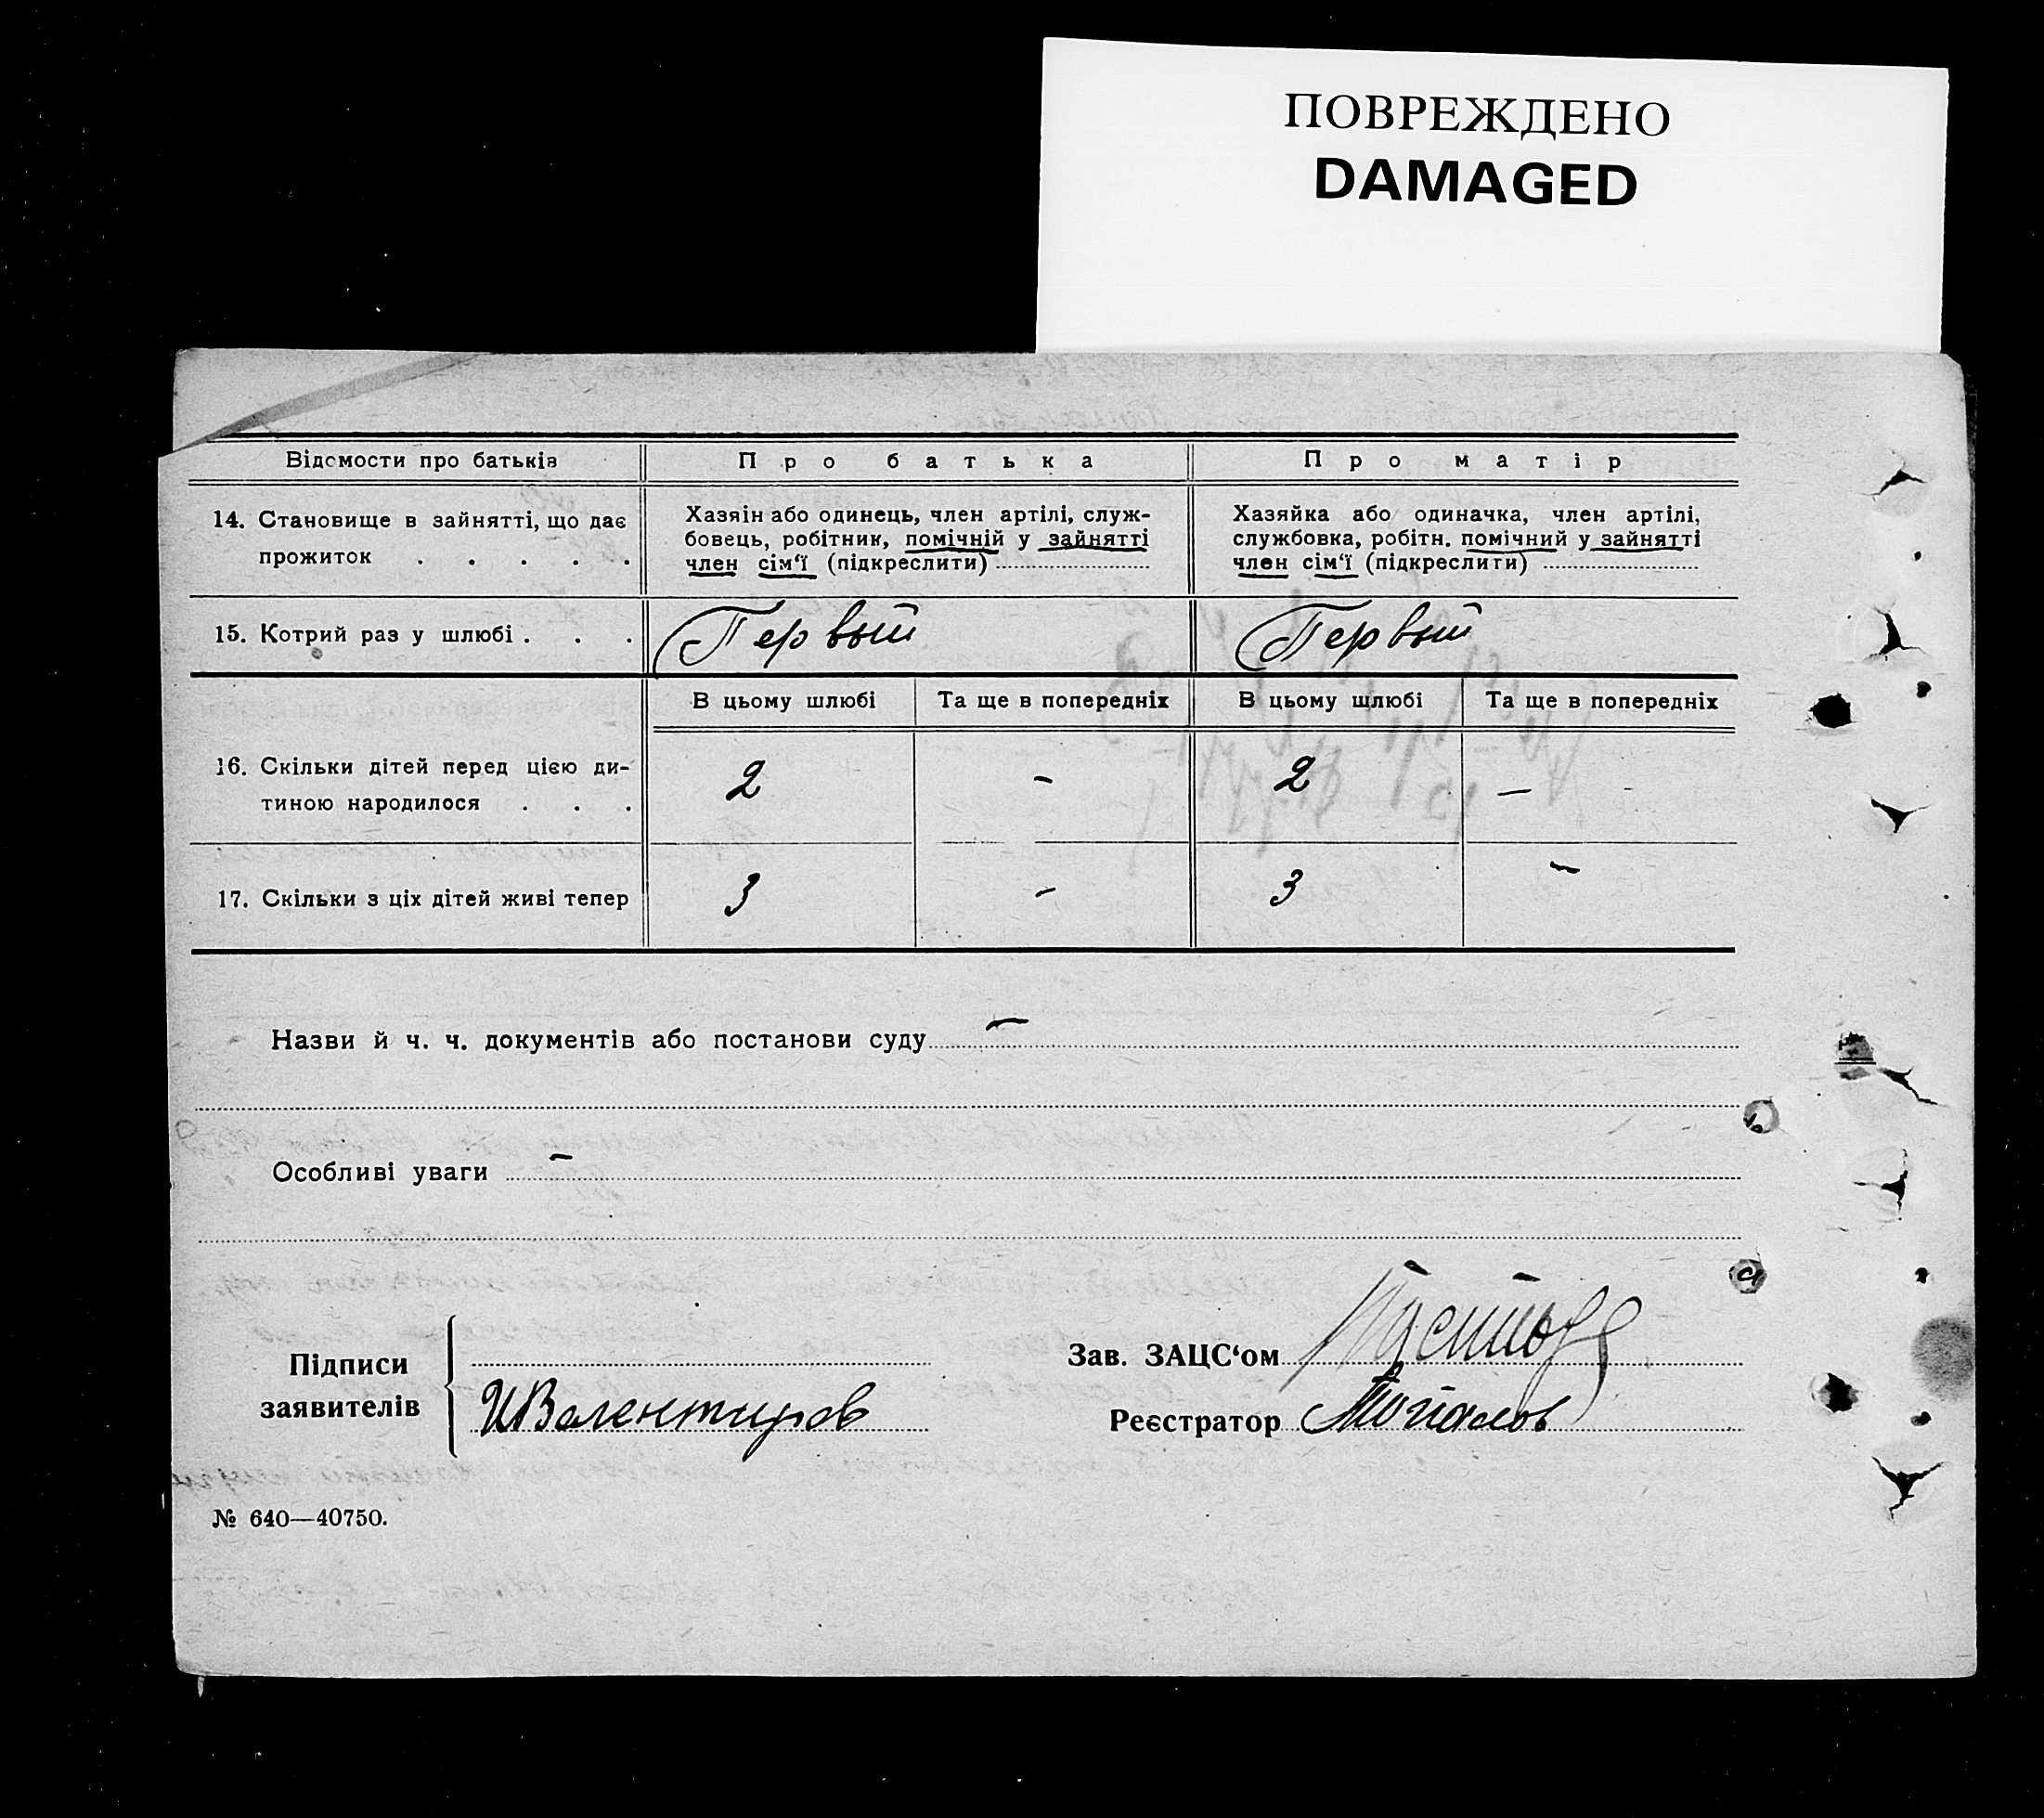 ПОВРЕЖДЕНО
DAMAGED
Відомости про батьків
Про батька
Про матір
14. Становище в зайнятті, що дає
прожиток . . . . .
Хазяін або одинець, член артілі, служ-
бовець, робітник, помічній у зайнятті
член сім‘ї (підкреслити)
Хазяйка або одиначка, член артілі,
службовка, робітн. помічний у зайнятті
член сім‘ї (підкреслити)
15. Котрий раз у шлюбі . . .
Первый
Первый
В цьому шлюбі
Та ще в попередніх
В цьому шлюбі
Та ще в попередніх
16. Скільки дітей перед цією ди-
тиною народилося . . .
2
-
2
—
17. Скільки з ціх дітей живі тепер
3
-
3
-
Назви й ч. ч. документів або постанови суду —
Особливі уваги —
Підписи
заявителів
ИВалентиров
Зав. ЗАЦС‘ом
Реєстратор
№ 640—40750.